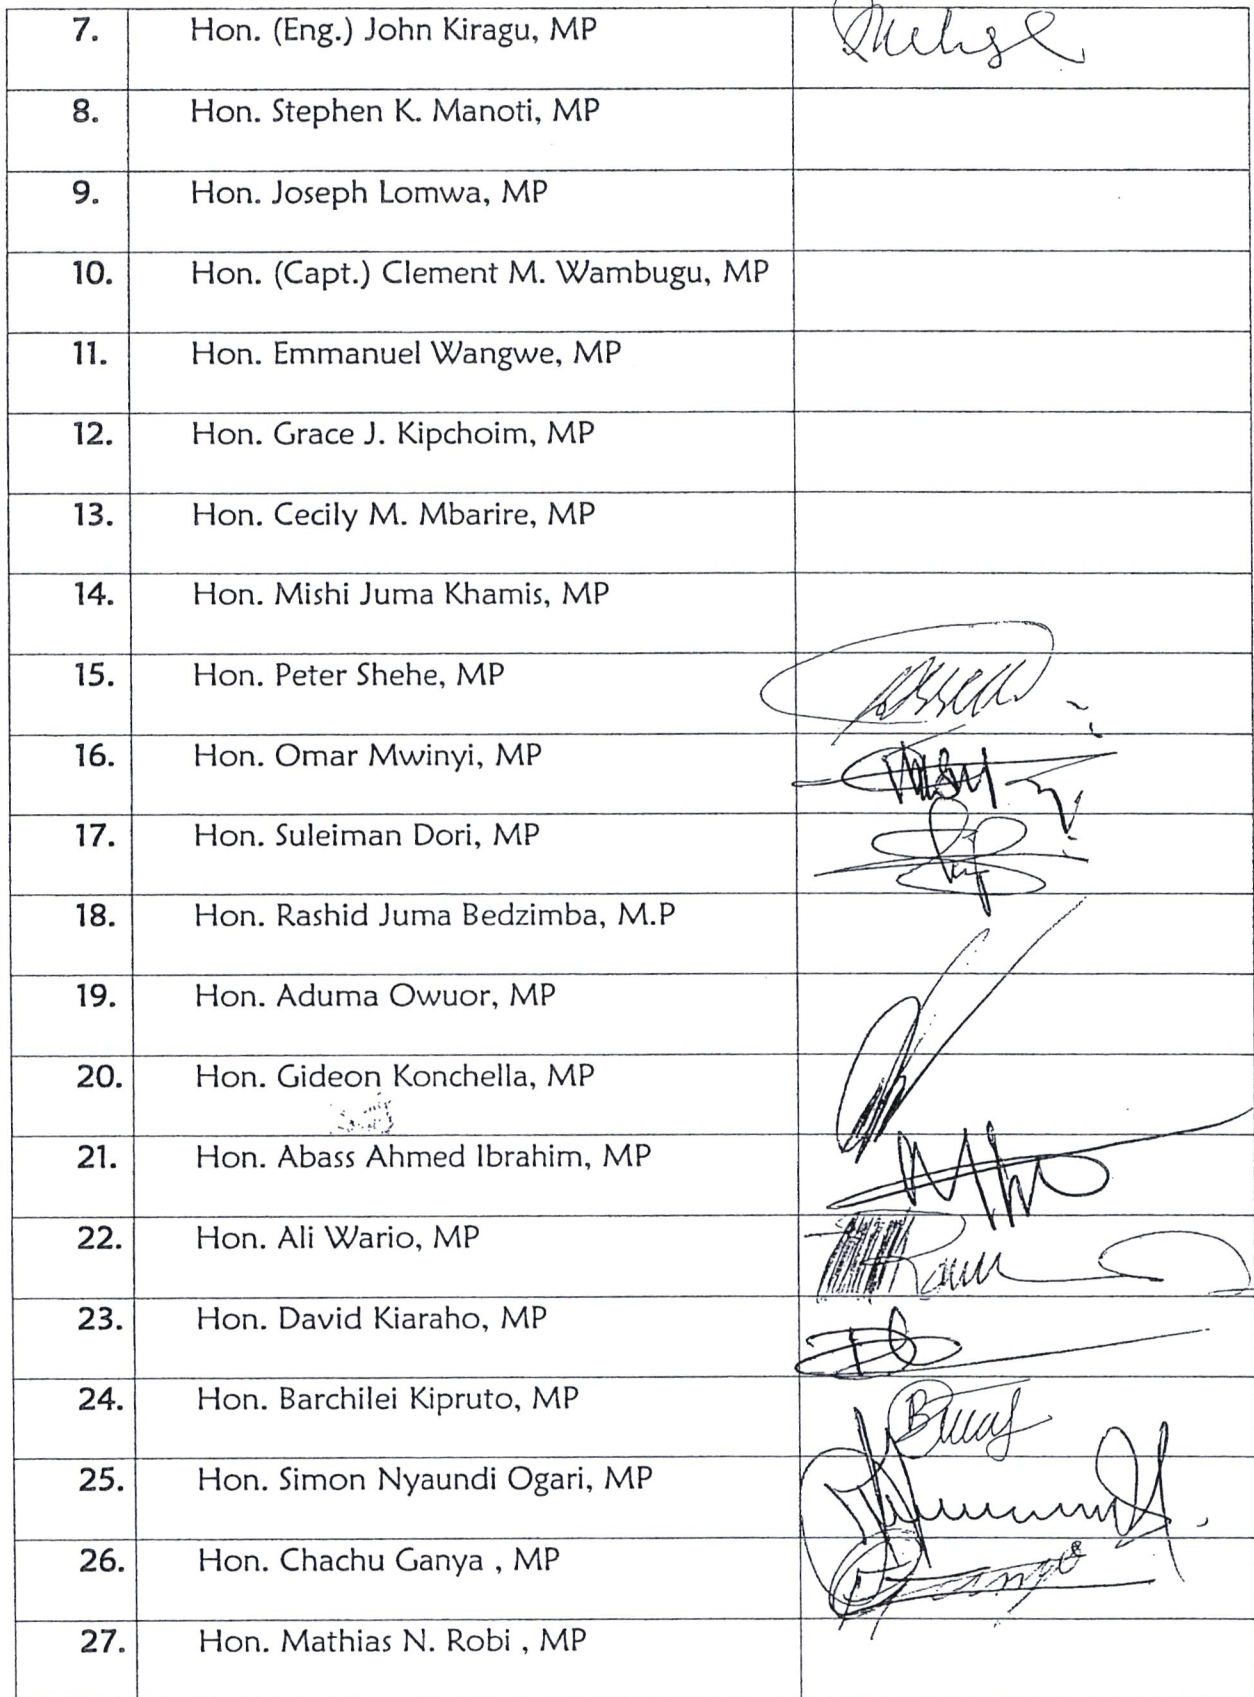 7. Hon. (Eng.) John Kiragu, MP
8. Hon. Stephen K. Manoti, MP
9. Hon. Joseph Lomwa, MP
10. Hon. (Capt.) Clement M. Wambugu, MP
11. Hon. Emmanuel Wangwe, MP
12. Hon. Grace J. Kipchoim, MP
13. Hon. Cecily M. Mbarire, MP
14. Hon. Mishi Juma Khamis, MP
15. Hon. Peter Shehe, MP
16. Hon. Omar Mwinyi, MP
17. Hon. Suleiman Dori, MP
18. Hon. Rashid Juma Bedzimba, M.P
19. Hon. Aduma Owuor, MP
20. Hon. Gideon Konchella, MP
21. Hon. Abass Ahmed Ibrahim, MP
22. Hon. Ali Wario, MP
23. Hon. David Kiaraho, MP
24. Hon. Barchilei Kipruto, MP
25. Hon. Simon Nyaundi Ogari, MP
26. Hon. Chachu Ganya , MP
27. Hon. Mathias N. Robi , MP